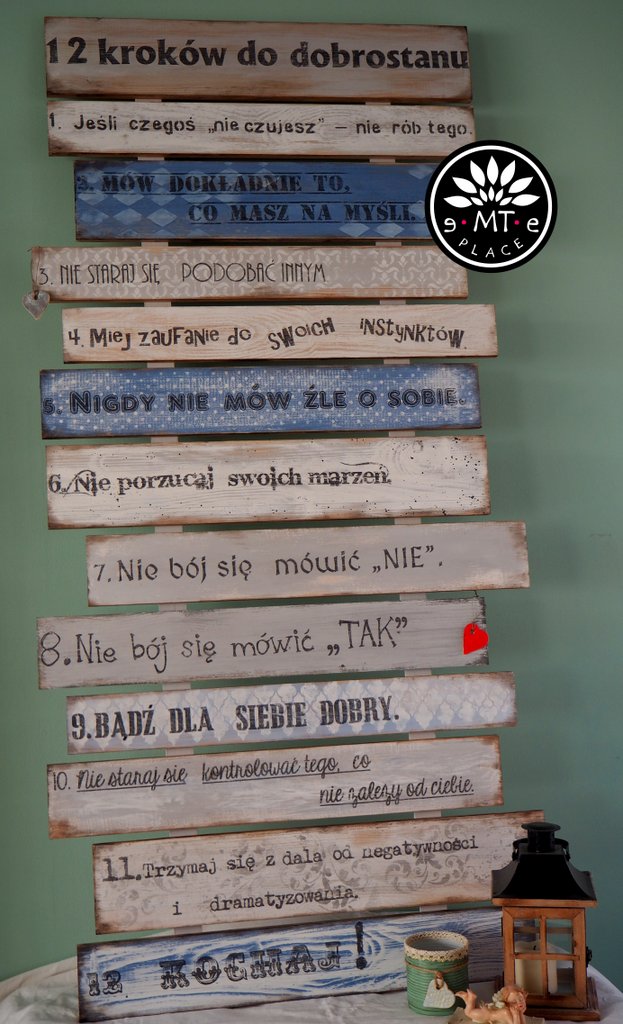 12 kroków do dobrostanu
1. Jeśli czegoś „nie czujesz” – nie rób tego.
2. MÓW DOKŁADNIE TO,
CO MASZ NA MYŚLI.
e·MT·e
PLACE
3. NIE STARAJ SIĘ PODOBAĆ INNYM
4. Miej zaufanie do swoich instynktów.
5. NIGDY NIE MÓW ŹLE O SOBIE.
6. Nie porzucaj swoich marzeń.
7. Nie bój się mówić „NIE”.
8. Nie bój się mówić „TAK”
9. BĄDŹ DLA SIEBIE DOBRY.
10. Nie staraj się kontrolować tego, co
nie zależy od ciebie.
11. Trzymaj się z dala od negatywności
i dramatyzowania.
12. KOCHAJ!